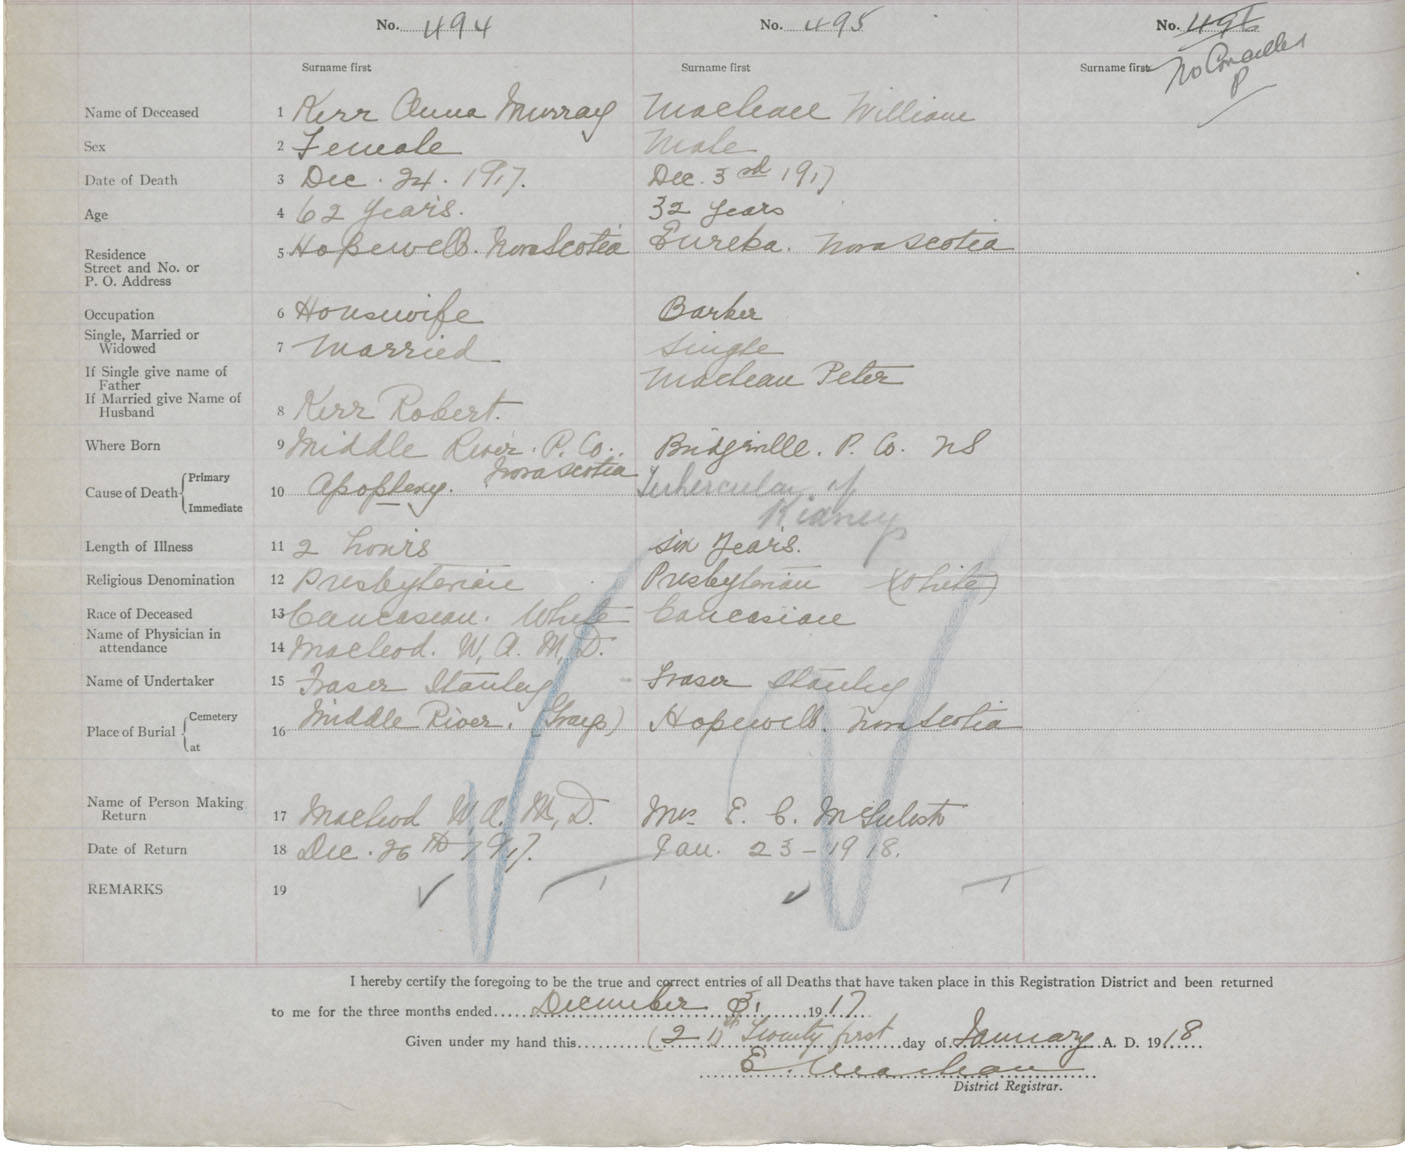 No. 494 No. 495 No. 496
Surname first Surname first Surname first No Cancelled
Name of Deceased 1 Kerr Anna Murray MacLean William
Sex 2 Female Male
Date of Death 3 Dec. 24. 1917. Dec. 3rd 1917
Age 4 62 years. 32 years
Residence
Street and No. or
P. O. Address
5 Hopewell. Nova Scotia Eureka. Nova Scotia
Occupation 6 Housewife Barker
Single, Married or
Widowed
7 Married Single
If Single give name of
Father
MacLean Peter
If Married give Name of
Husband
8 Kerr Robert.
Where Born 9 Middle River. P. Co. Bridgeville. P. Co. NS
Nova Scotia
Cause of Death Primary
Immediate
10 Apoplexy. Tubercular of
Kidney
Length of Illness 11 2 hours six years.
Religious Denomination 12 Presbyterian Presbyterian (White)
Race of Deceased 13 Caucasean. White Caucasian
Name of Physician in
attendance
14 Macleod. W. A. M. D.
Name of Undertaker 15 Fraser Stanley Fraser Stanley
Place of Burial Cemetery
at
16 Middle River. (Grays) Hopewell. Nova Scotia
Name of Person Making
Return
17 Macleod W. A. M. D. Mrs E. C.
Date of Return 18 Dec. 26th 1917. Jan. 23-1918.
REMARKS 19
I hereby certify the foregoing to be the true and correct entries of all Deaths that have taken place in this Registration District and been returned
to me for the three months ended December 31 1917
Given under my hand this (21)st Twenty first day of January A. D. 1918
E. MacLean
District Registrar.